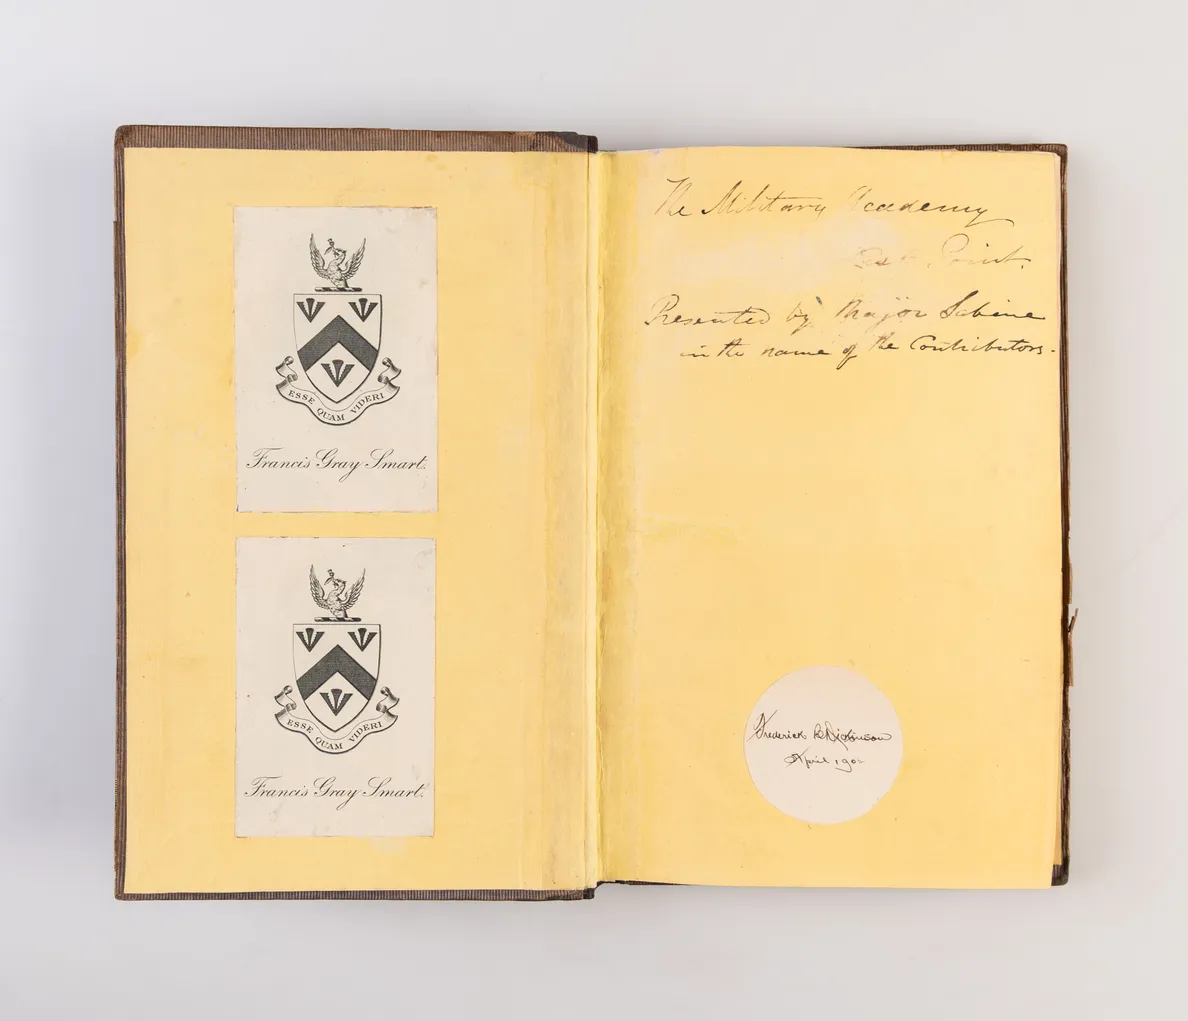 ESSE QUAM VIDERI
Francis Gray Smart.
ESSE QUAM VIDERI
Francis Gray Smart.
The Military Academy
Point.
Presented by Major Sabine
in the name of the Contributors.
Frederick Dickinson
April